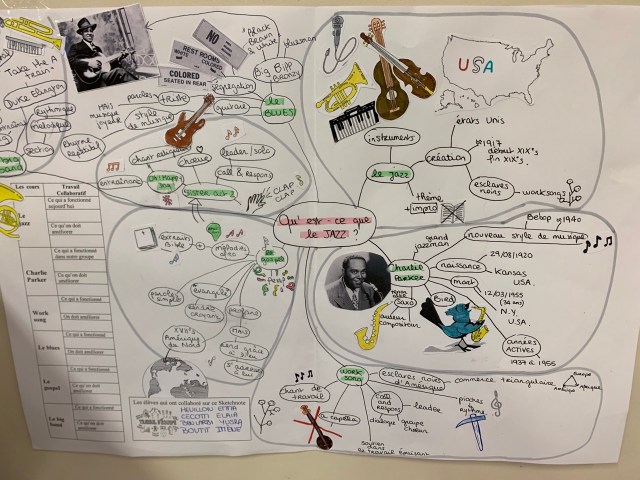 Take the A
Train
Duke Ellington
rythmique
mélodique
section
NO
REST ROOMS
WHITE
COLORED
COLORED
SEATED IN REAR
"Black
Brown &
White"
Bluesman
Big Bill
Broonzy
ségrégation
le BLUES
paroles
triste
MAIS
musique
joyeuse
style de
musique
guitare
chant religieux
chœur
leader / solo
call & respons
entraînant
Oh happy
day
Sister act 2
CLAP
CLAP
Qu'est-ce que
le JAZZ ?
USA
états Unis
instruments
création
1917
début XX°s
fin XIX°s
le jazz
esclaves
noirs
worksongs
thème
+ impro
Bebop 1940
nouveau style de musique
grand
jazzman
Charlie
Parker
naissance
29/08/1920
Kansas
USA
mort
12/03/1955
(34 ans)
N.Y.
U.S.A.
Bird
saxo
auteur
compositeur
années
ACTIVES
1937 à 1955
extraits
Bible
le gospel
paroles
simples
évangile
profane
MAIS
rend grâce
à Dieu
XVII°s
Amérique
du Nord
work
song
esclaves noirs
d'Amérique
commerce triangulaire
Europe
Afrique
Amérique
chant de
travail
a capella
call
and
respons
leader
dialogue
groupe
chœur
pioches
=
rythme
soutien
dans
le travail épuisant
Les cours
Travail
Collaboratif
Le
jazz
Ce qui a fonctionné
aujourd'hui
Ce qu'on doit
améliorer
Charlie
Parker
Ce qui a fonctionné
dans notre groupe
Ce qu'on doit
améliorer
Work
song
Ce qui a fonctionné
On doit améliorer
Le blues
Ce qui a fonctionné
Ce qu'on doit
améliorer
Le
gospel
Ce qui a fonctionné
Ce qu'on doit
améliorer
Le big
band
Ce qui a fonctionné
Ce qu'on doit
améliorer
Les élèves qui ont collaboré sur ce Sketchnote